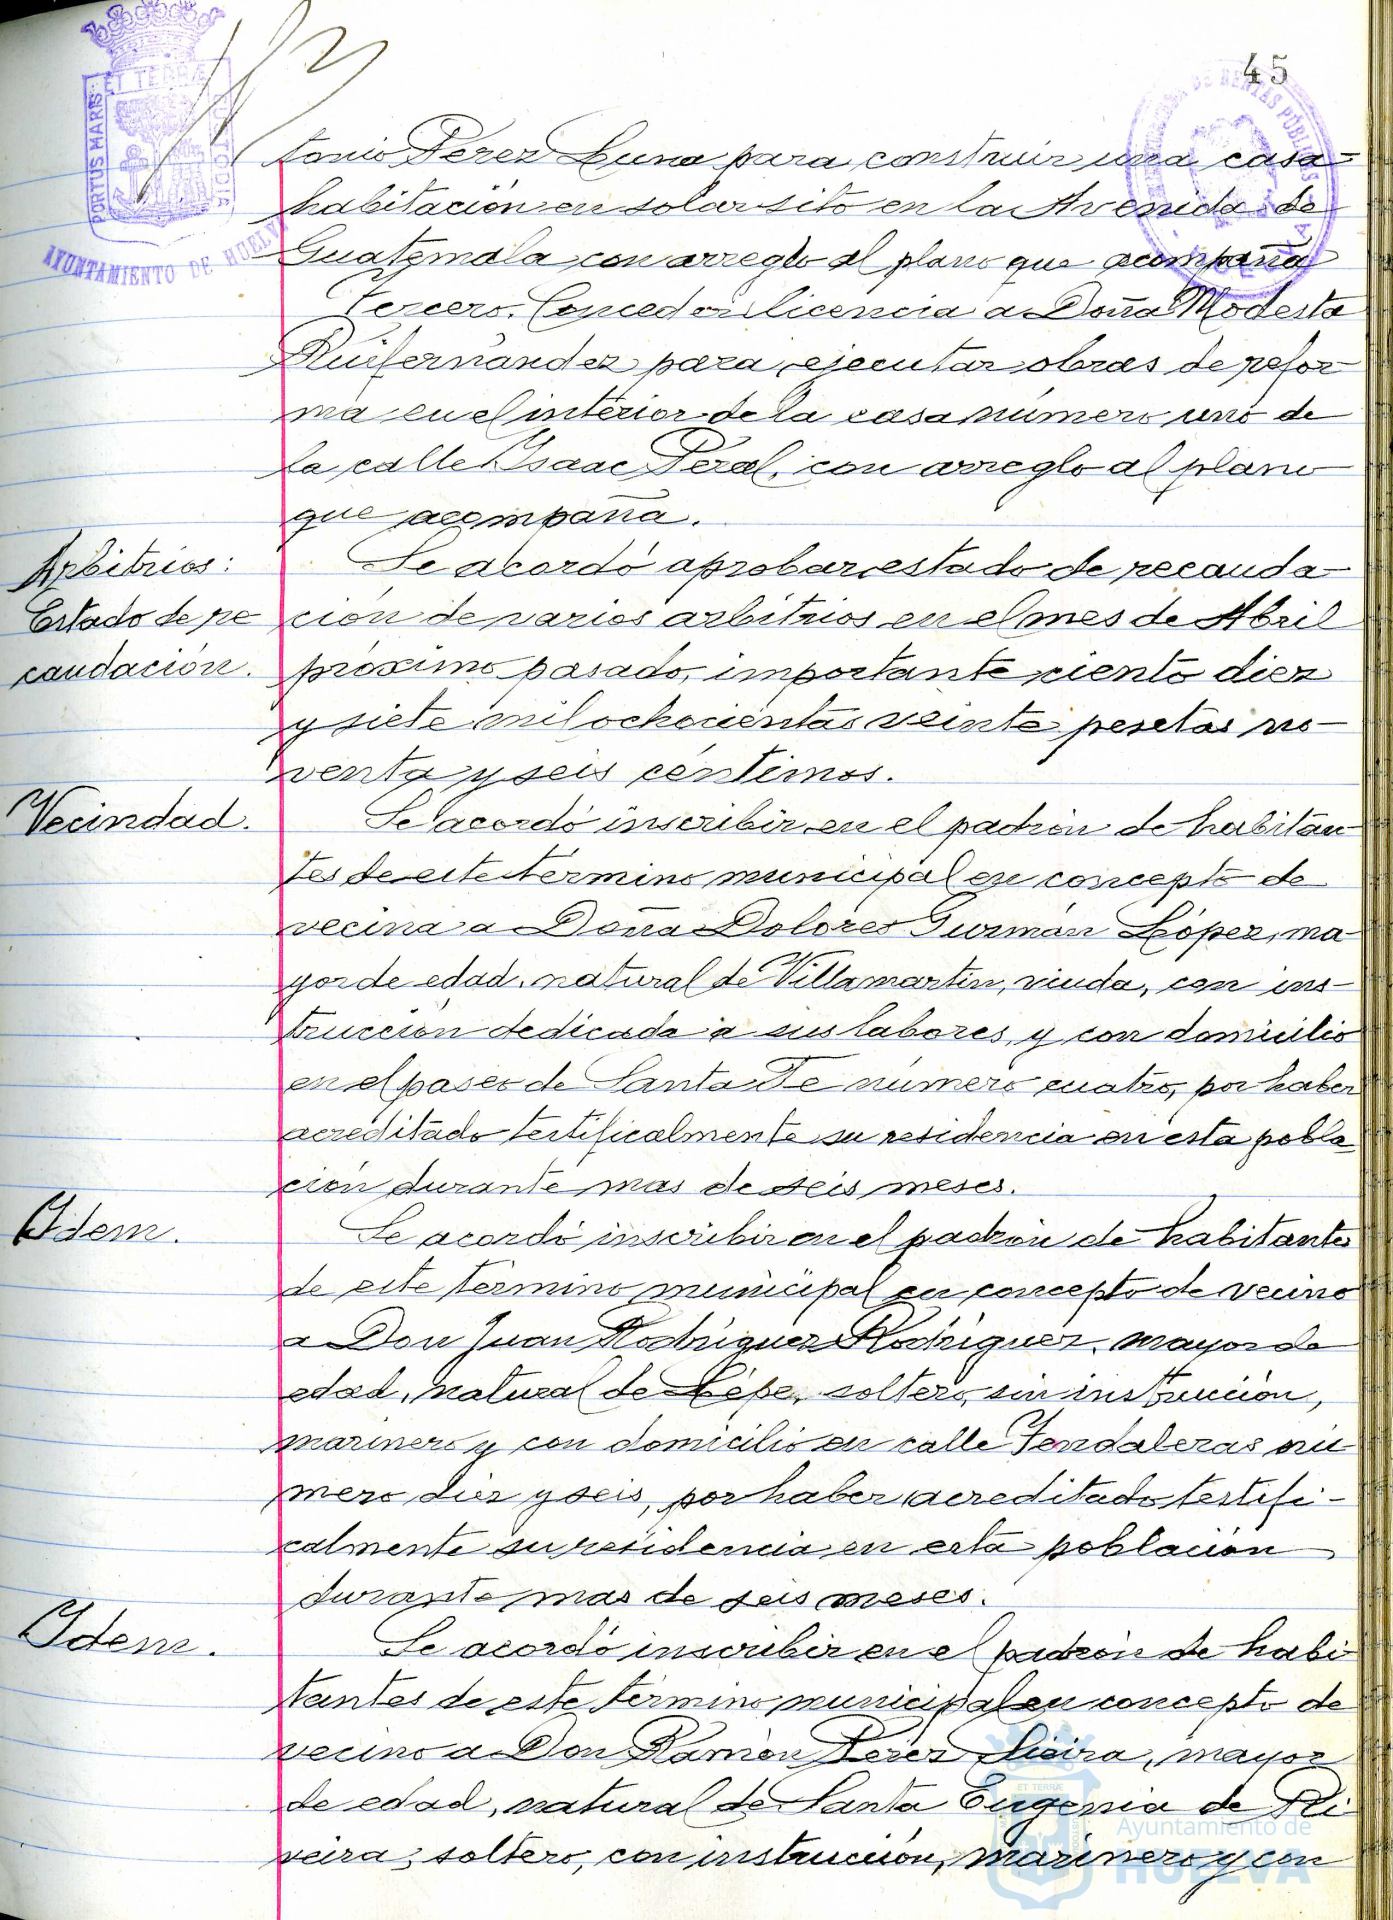 45
PORTUS MARIS ET TERRÆ CUSTODIA
AYUNTAMIENTO DE HUELVA
DE RENTAS PÚBLICAS
tonio Pérez Luna para construir una casa-
habitación en solar sito en la Avenida de
Guatemala con arreglo al plano que acompaña
Tercero. Conceder licencia a Doña Modesta
Ruifernández para ejecutar obras de refor-
ma en el interior de la casa número uno de
la calle Isaac Peral, con arreglo al plano
que acompaña.
Arbitrios:
Estado de re
caudación.
Se acordó aprobar estado de recauda-
ción de varios arbitrios en el mes de Abril
próximo pasado, importante ciento diez
y siete mil ochocientas veinte pesetas no-
venta y seis céntimos.
Vecindad.
Se acordó inscribir en el padrón de habitan-
tes de este término municipal en concepto de
vecina a Doña Dolores Guzmán López, ma-
yor de edad, natural de Villamartín, viuda, con ins-
trucción dedicada a sus labores, y con domicilio
en el paseo de Santa Fe número cuatro, por haber
acreditado testificalmente su residencia en esta pobla
ción durante mas de seis meses.
Idem.
Se acordó inscribir en el padrón de habitantes
de este término municipal en concepto de vecino
a Don Juan Rodríguez Rodríguez, mayor de
edad, natural de Lepe, soltero, sin instrucción,
marinero y con domicilio en calle Tendaleras nú
mero diez y seis, por haber acreditado testifi-
calmente su residencia en esta población
durante mas de seis meses.
Idem.
Se acordó inscribir en el padrón de habi-
tantes de este término municipal en concepto de
vecino a Don Ramón Pérez Sieira, mayor
de edad, natural de Santa Eugenia de Ri
veira, soltero, con instrucción, marinero y con
Ayuntamiento de
HUELVA